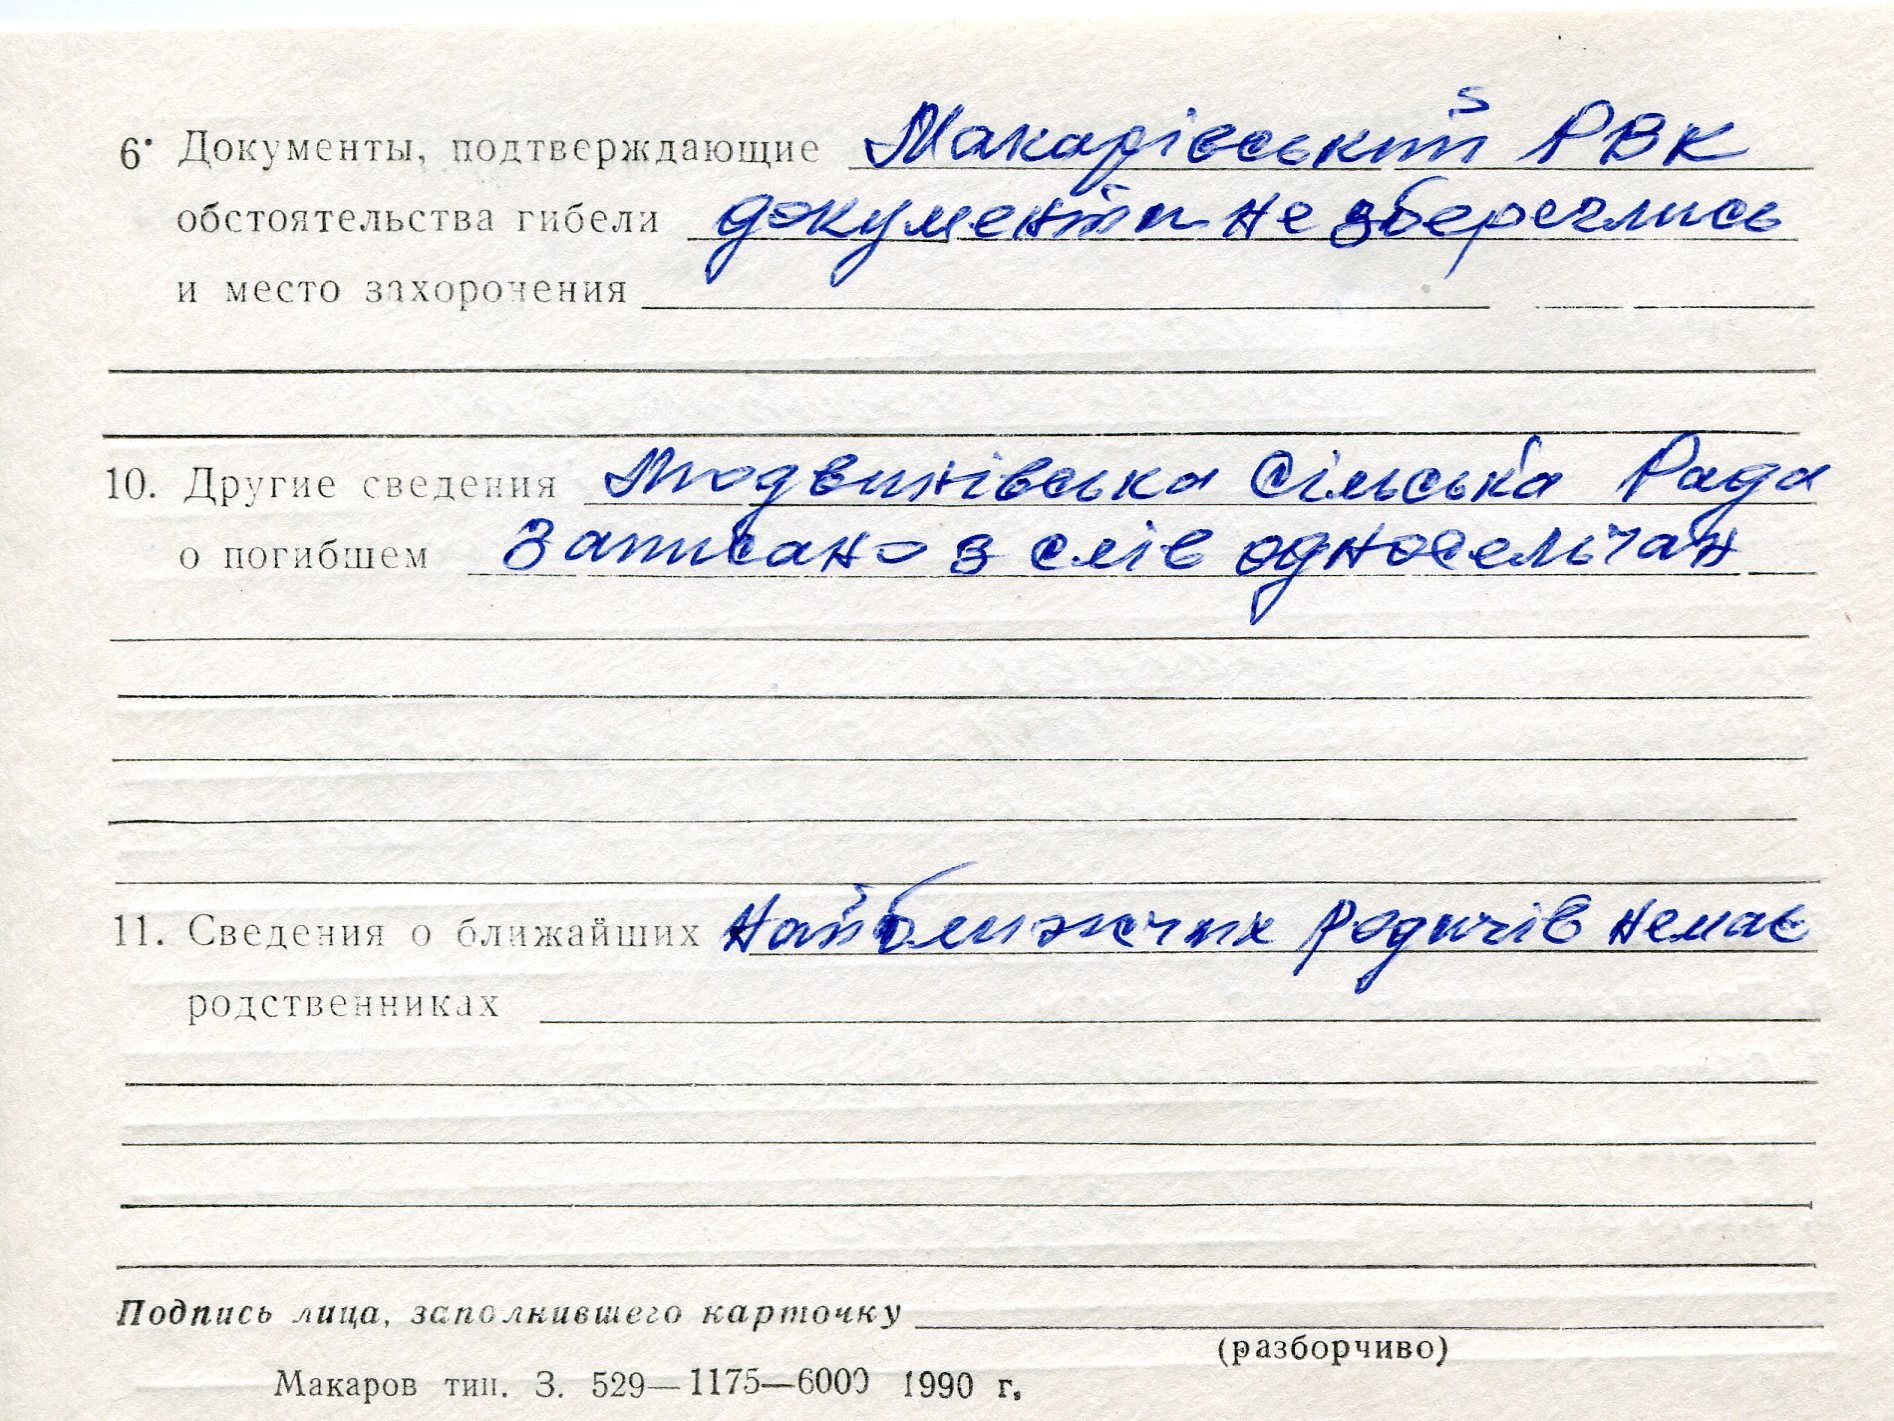 6. Документы, подтверждающие Макарівський РВК
обстоятельства гибели документи не збереглись
и место захоронения
10. Другие сведения Людвинівська Сільська Рада
о погибшем Записано з слів односельчан
11. Сведения о ближайших Найближчих Родичів немає
родственниках
Подпись лица, заполнившего карточку
(разборчиво)
Макаров тип. З. 529—1175—6000 1990 г.